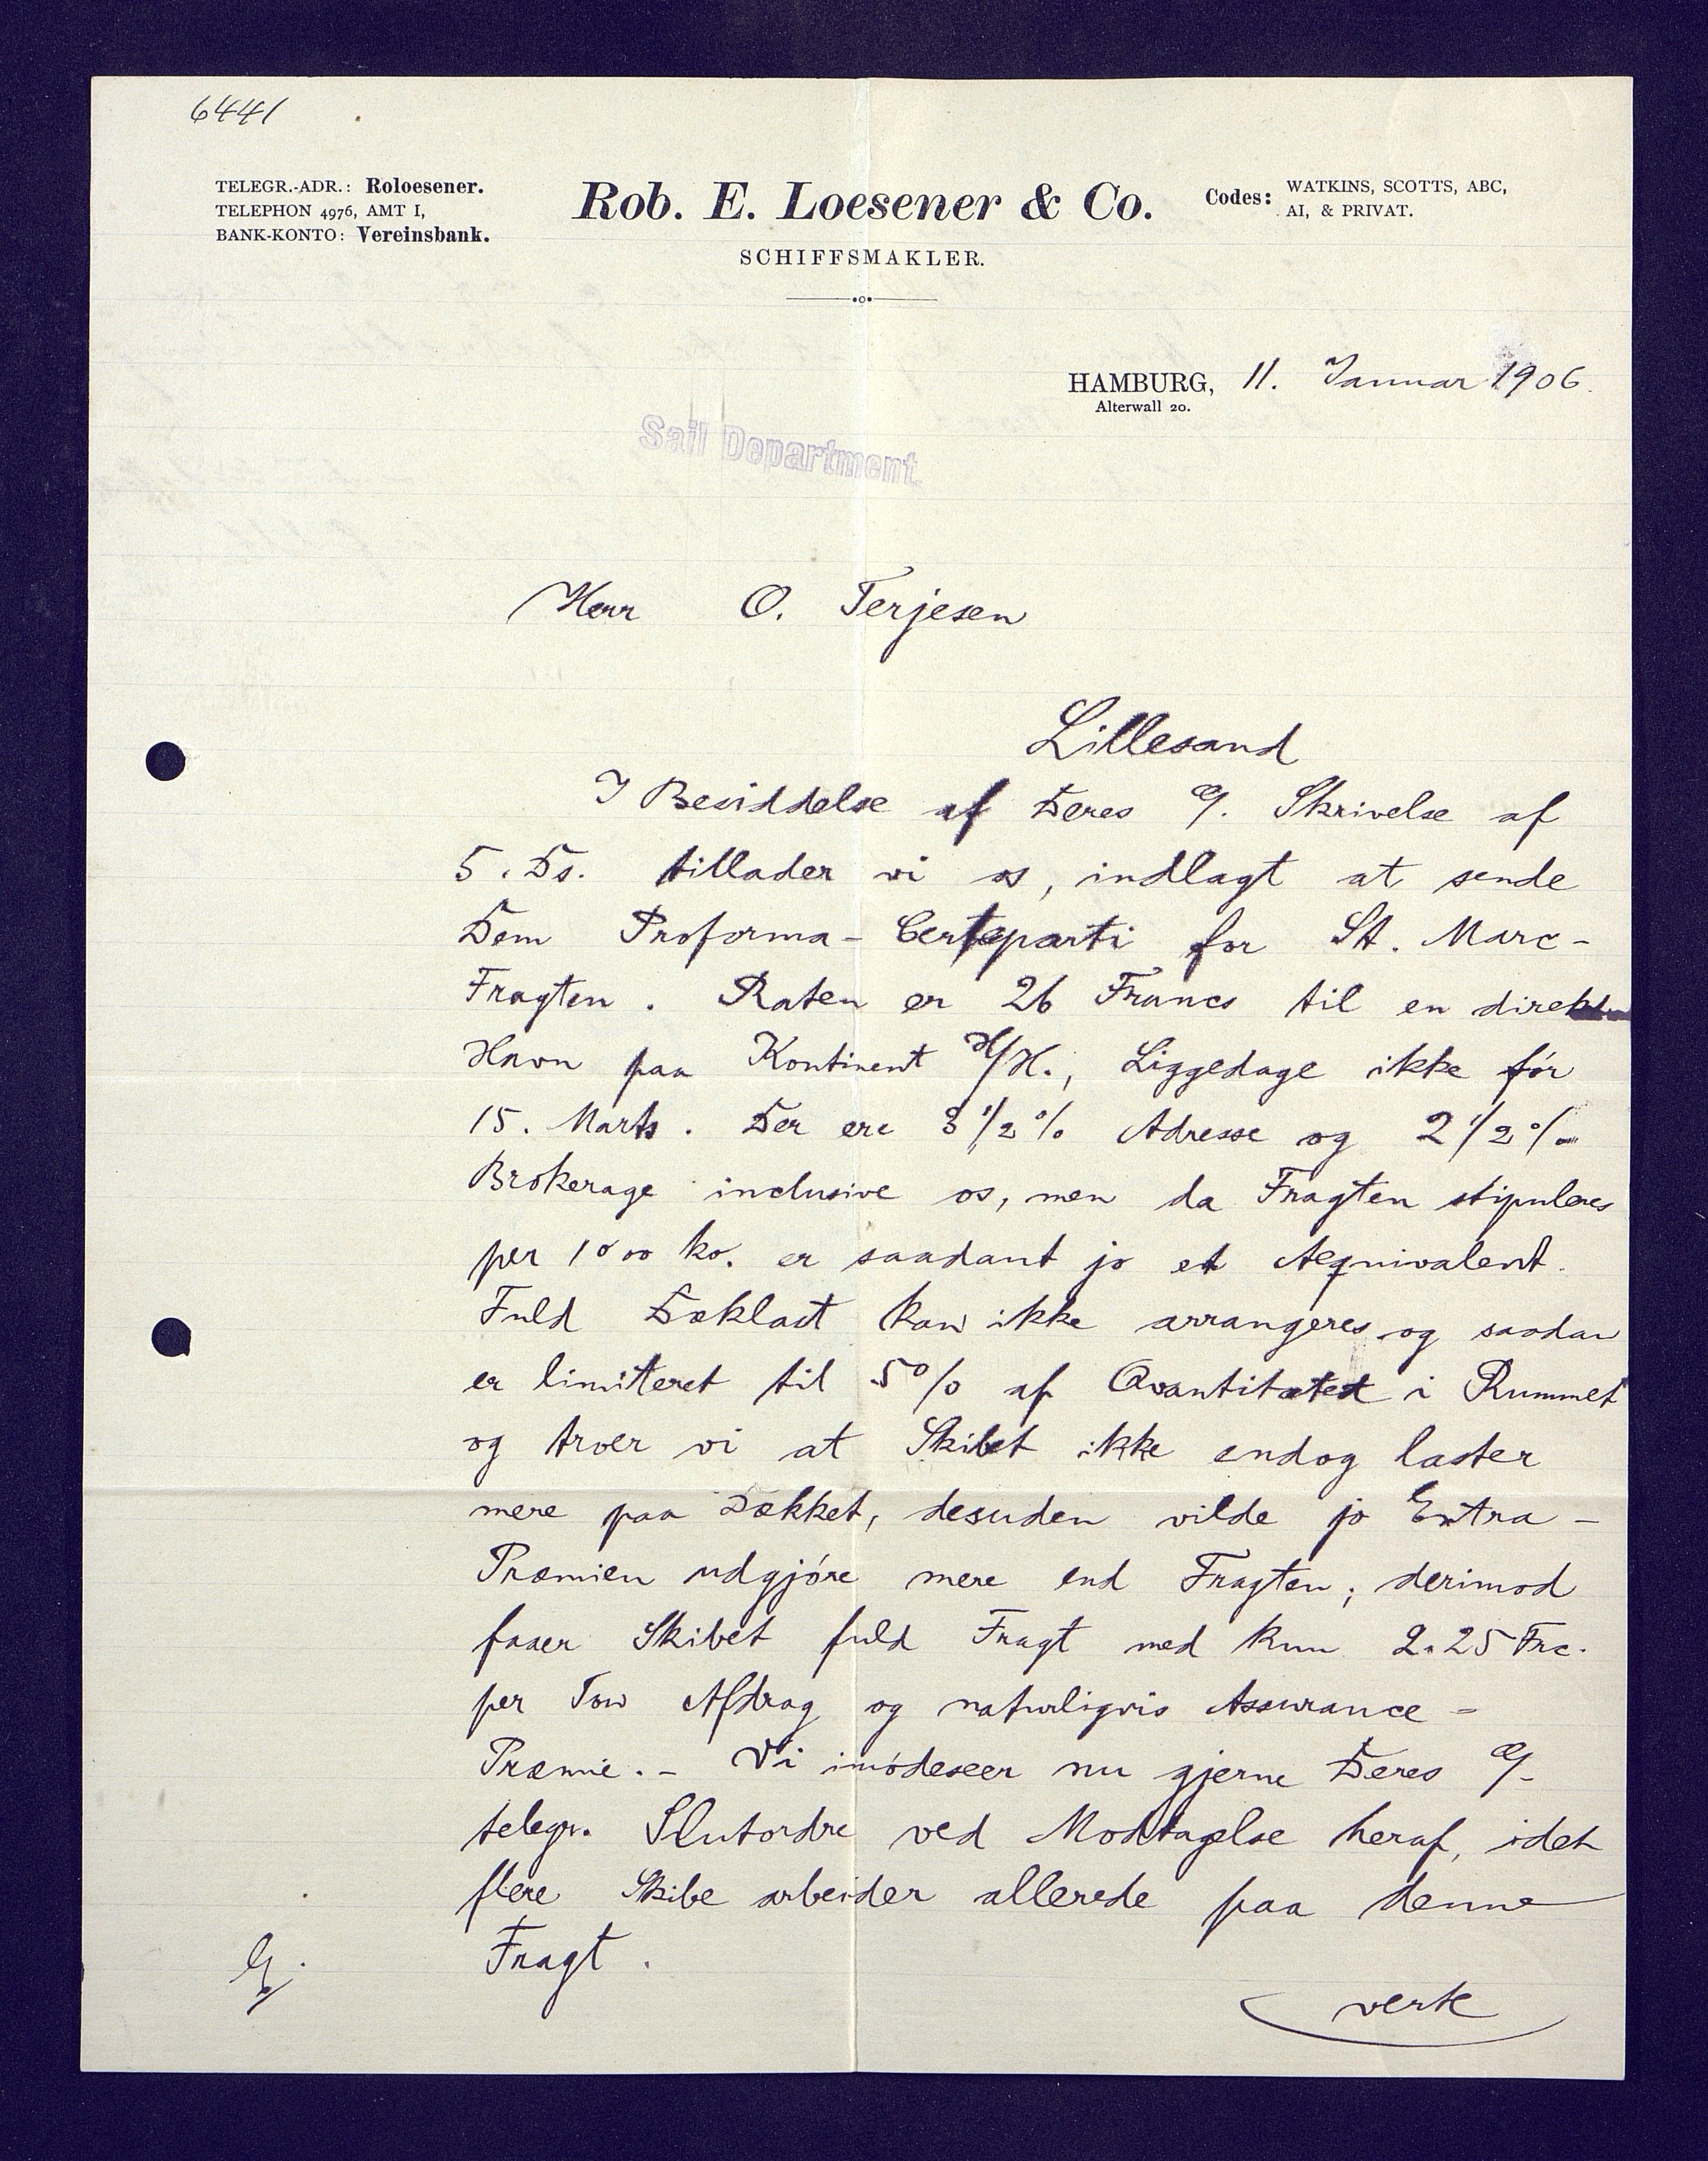 6441
TELEGR.-ADR.: Roloesener.
TELEPHON 4976, AMT I,
BANK-KONTO: Vereinsbank.
Rob. E. Loesener & Co.
SCHIFFSMAKLER.
Codes: WATKINS, SCOTTS, ABC,
AI, & PRIVAT.
HAMBURG, 11. Januar 1906.
Alterwall 20.
Sail Department.
Herr O. Terjesen
Lillesand
I Besiddelse af Deres Skrivelse af
5. Ds. tillader vi os, indlagt at sende
Dem Proforma- Certeparti for St. Marc-
Fragten. Raten er 26 Francs til en direkte
Havn paa Kontinent H/H., Liggedage ikke før
15. Marts. Der ere 3 1/2 % Adresse og 2 1/2 %
Brokerage inclusive os, men da Fragten stipuleres
per 1000 ko. er saadant jo et Aequivalent.
Fuld Dæklast kan ikke arrangeres og saadan
er limiteret til 5% af Qvantitetet i Rummet
og troer vi at Skibet ikke endog laster
mere paa Dækket, desuden vilde jo Extra-
Præmien udgjøre mere end Fragten; derimod
faaer Skibet fuld Fragt med kun 2.25 Frc.
per Ton Afdrag og naturligvis Assurance-
Præmie. - Vi imødeseer nu gjerne Deres
telegr. Slutordre ved Modtagelse heraf, idet
flere Skibe arbeider allerede paa denne
Fragt.
verte